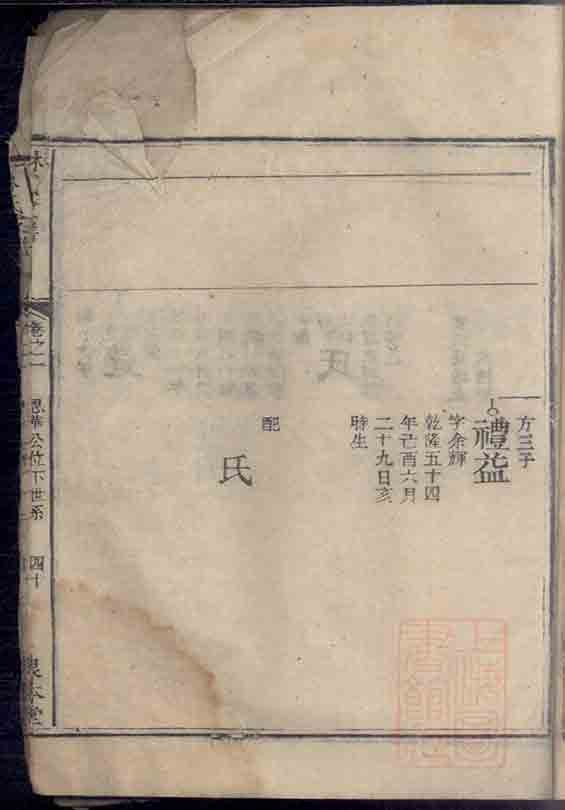 方三子
禮益
字余輝
乾隆五十四
年己酉六月
二十九日亥
時生
配
氏
卷之一
思華公位下世系
四十